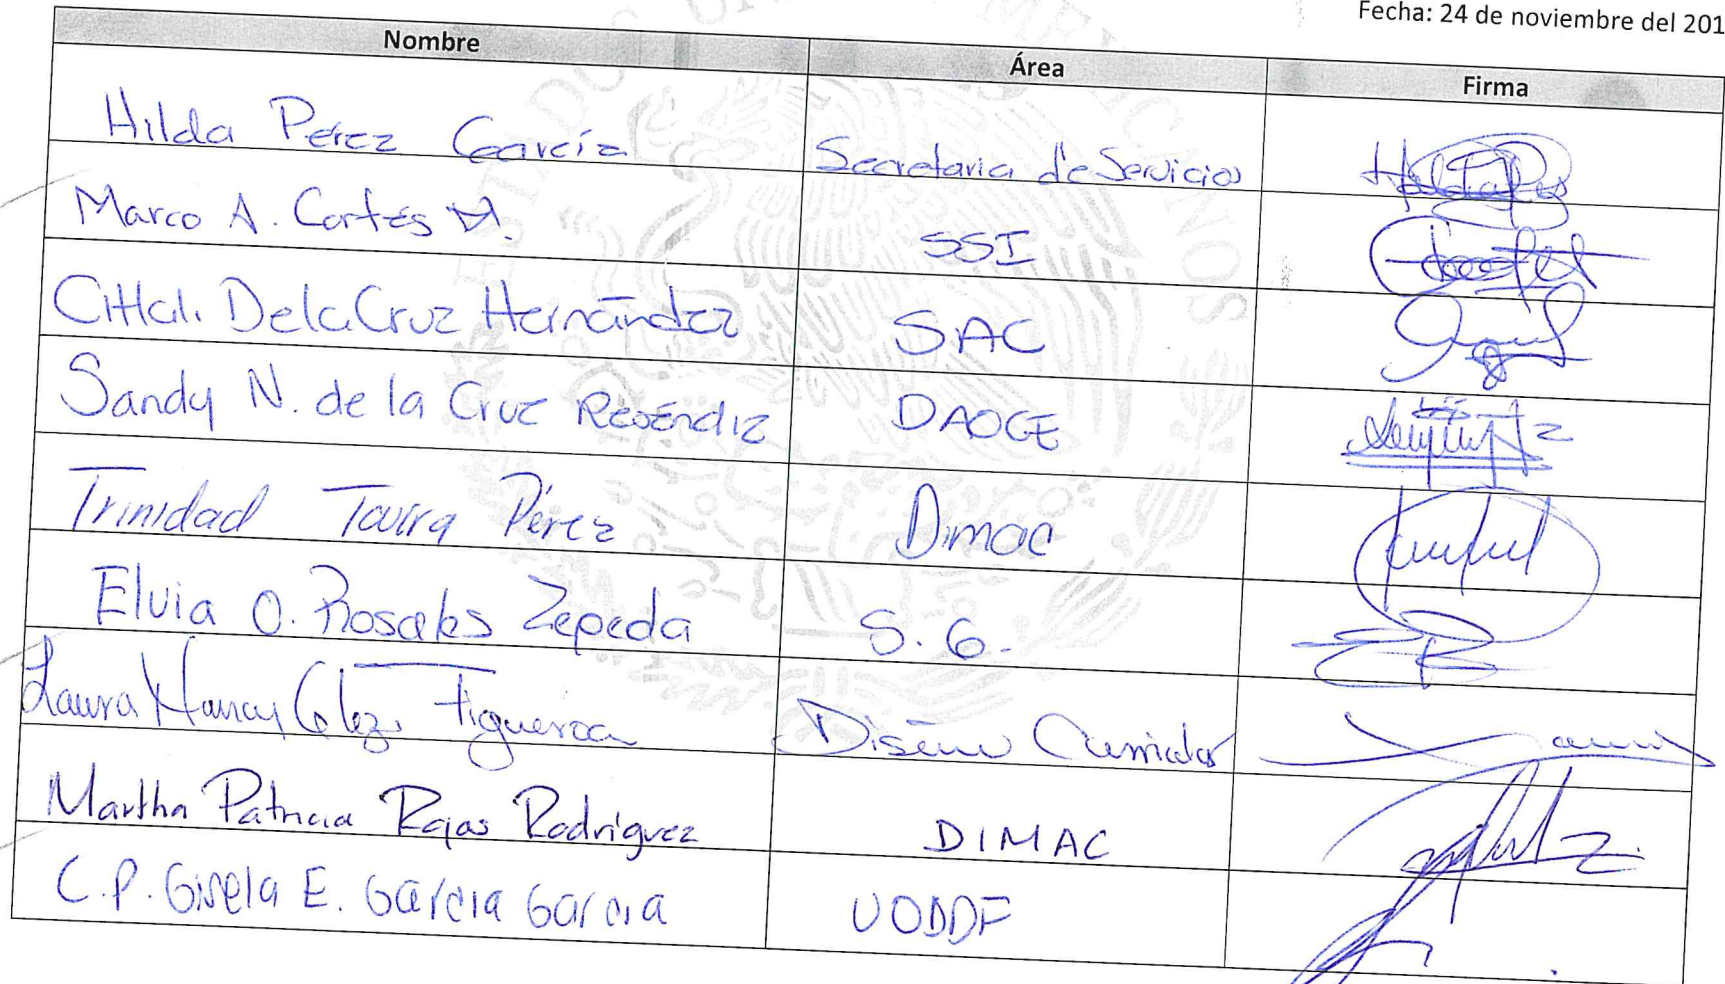 Fecha: 24 de noviembre del 201
Nombre Área Firma
Hilda Pérez García Secretaria de Servicios
Marco A. Cortés M. SSI
Citlali De la Cruz Hernández SAC
Sandy N. de la Cruz Reséndiz DAOGE
Trinidad Tavira Pérez Dimac
Elvia O. Rosales Zepeda S. G.
Laura Nancy Figueroa Diseño Curricular
Martha Patricia Rojas Rodríguez DIMAC
C.P. Gisela E. García García UODDF